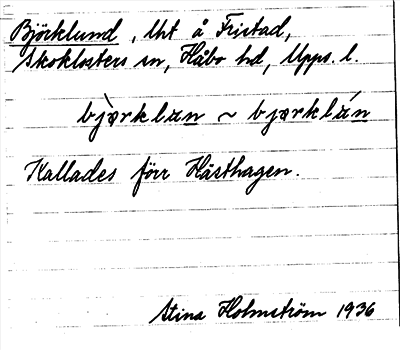 Björklund, Uht å Fristad,
Skoklosters sn, Håbo hd, Upps. l.
bjὰrklun ~ bjarklán
Kallades förr Hästhagen.
Stina Holmström 1936